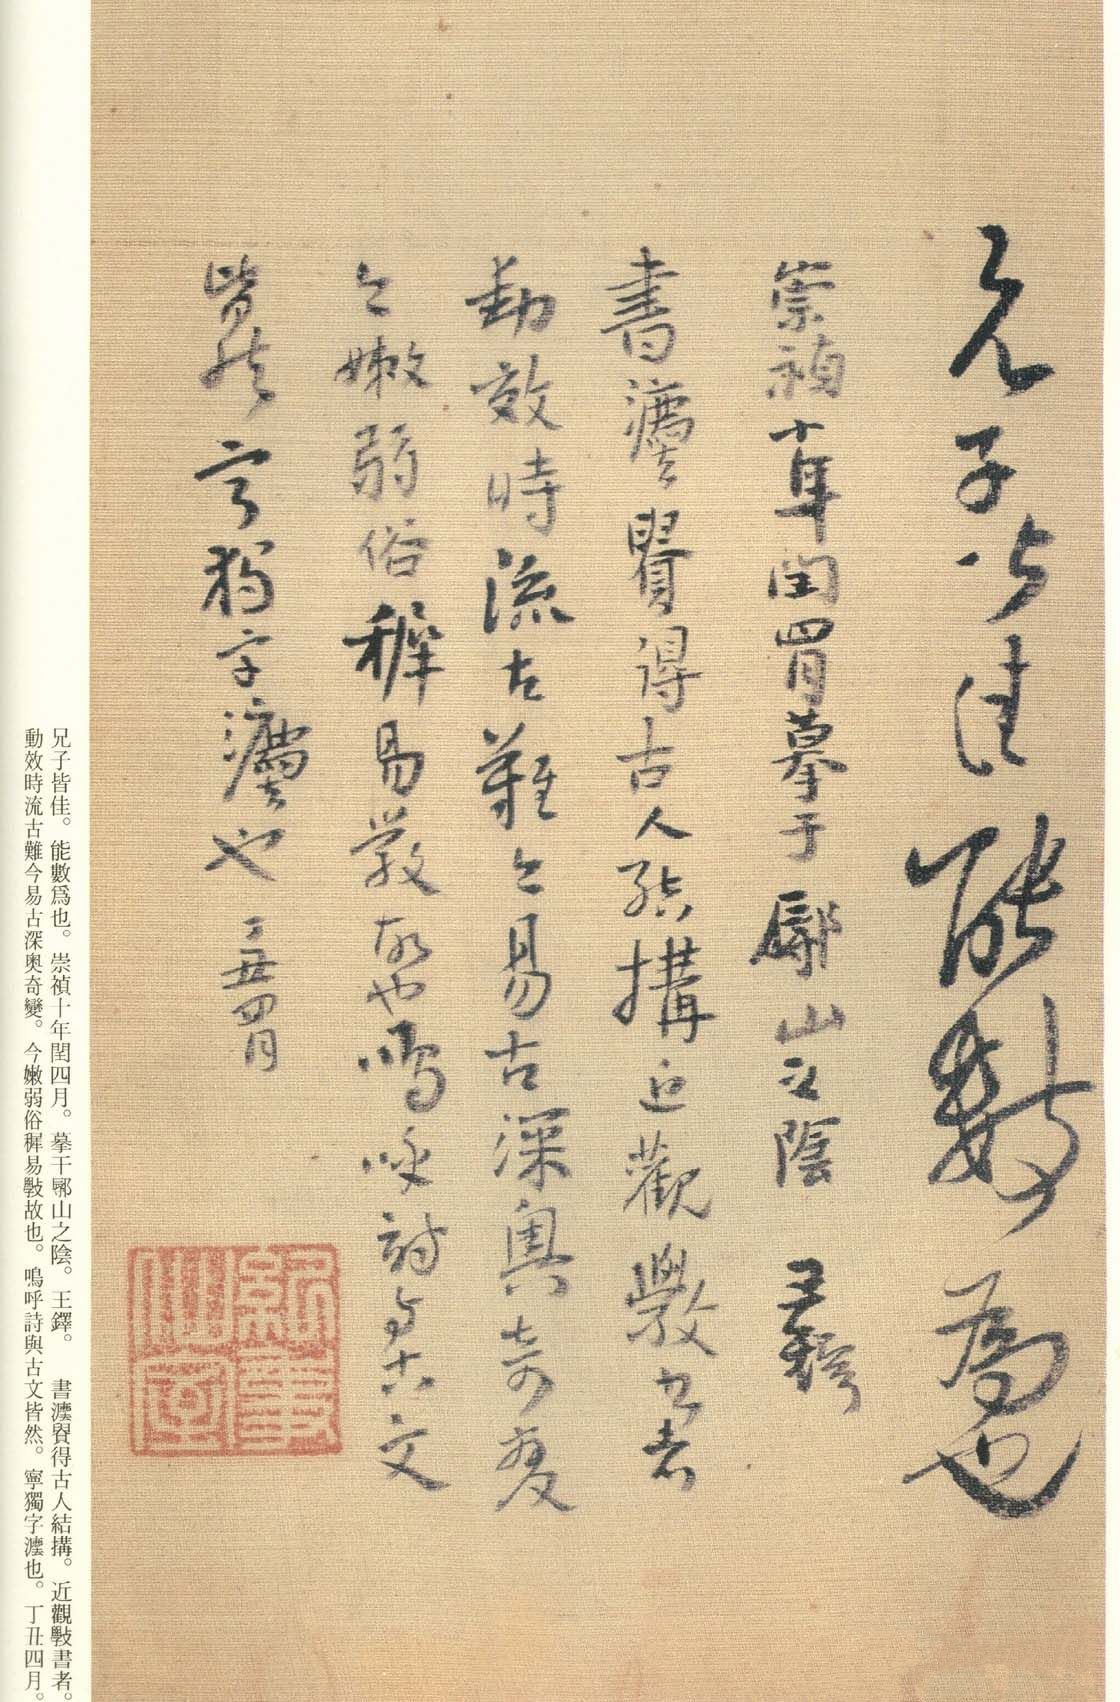 兄子皆佳能數為也
崇禎十年閏四月摹于鄏山之陰 王鐸
書灋貴得古人結構近觀學書者
動效時流古難今易古深奧奇變
今嫩弱俗穉易學故也嗚呼詩與古文
皆然寧獨字灋也丁丑四月
兄子皆佳。能數爲也。崇禎十年閏四月。摹于鄏山之陰。王鐸。 書灋貴得古人結搆。近觀斆書者。
動效時流古難今易古深奧奇變。今嫩弱俗穉易斆故也。嗚呼詩與古文皆然。寧獨字灋也。丁丑四月。